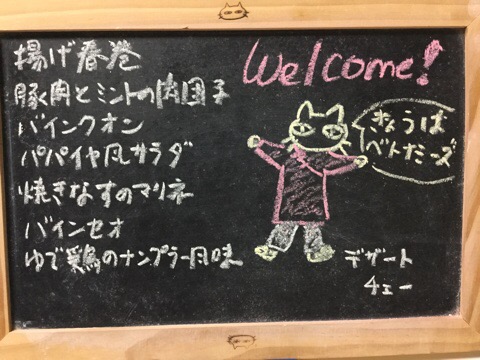 揚げ春巻
豚肉とミントの肉団子
バインクオン
パパイヤ風サラダ
焼きなすのマリネ
バインセオ
ゆで鶏のナンプラー風味
Welcome!
きょうは
ベトナミーズ
デザート
チェー